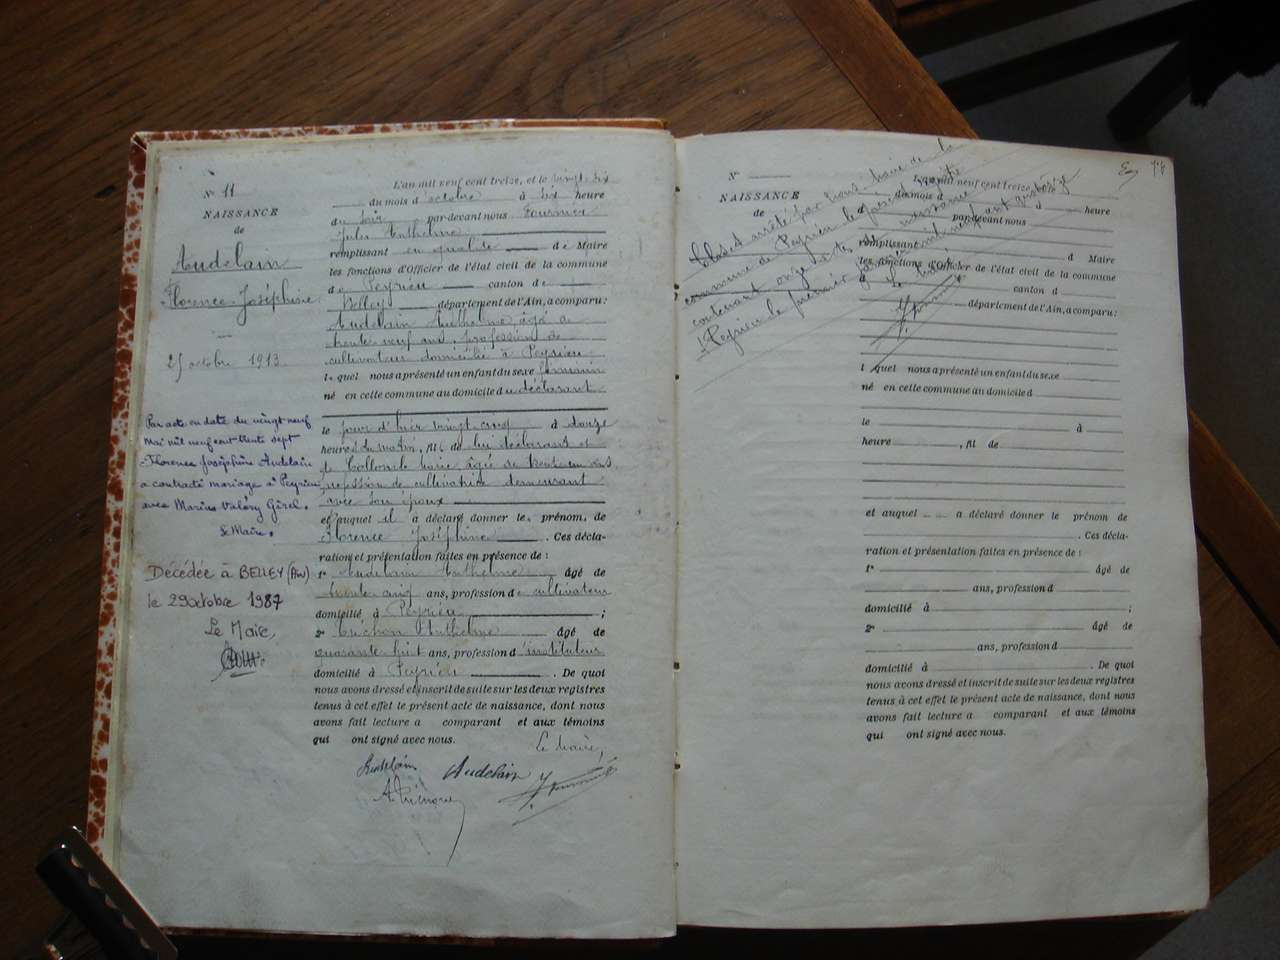 N° 11
NAISSANCE
de
Audelain
Florence Joséphine
25 octobre 1913
Par acte en date du vingt neuf
Mai mil neuf cent trente sept
Florence Joséphine Audelain
a contracté mariage à Peyrieu
avec Marius Valéry Girel.
Le Maire,
Décédée à BELLEY (Ain)
le 29 octobre 1987
Le Maire,
L'an mil neuf cent treize, et le vingt six
du mois d'octobre à six heure
du soir par-devant nous Fournier
Jules Anthelme
remplissant en qualité de Maire
les fonctions d'Officier de l'état civil de la commune
de Peyrieu canton de
Belley département de l'Ain, a comparu:
Audelain Anthelme, âgé de
trente neuf ans, profession de
cultivateur domicilié à Peyrieu
lequel nous a présenté un enfant du sexe féminin
né en cette commune au domicile du déclarant
le jour d'hier vingt cinq à douze
heures du matin, fil de lui déclarant et
de Collomb Marie âgée de trente ans
profession de cultivatrice demeurant
avec son époux
et auquel il a déclaré donner le prénom de
Florence Joséphine. Ces décla-
ration et présentation faites en présence de:
1° Audelain Anthelme âgé de
trente cinq ans, profession de cultivateur
domicilié à Peyrieu;
2° Anthelme âgé de
quarante huit ans, profession d'instituteur
domicilié à Peyrieu. De quoi
nous avons dressé et inscrit de suite sur les deux registres
tenus à cet effet le présent acte de naissance, dont nous
avons fait lecture a comparant et aux témoins
qui ont signé avec nous.
Le Maire,
Audelain Audelain
N°
NAISSANCE
de
78
L'an mil neuf cent treize, et le
du mois d à heure
par-devant nous
remplissant d Maire
les fonctions d'Officier de l'état civil de la commune
d canton d
département de l'Ain, a comparu:
l quel nous a présenté un enfant du sexe
né en cette commune au domicile d
le à
heure, fil de
et auquel a déclaré donner le prénom de
. Ces décla-
ration et présentation faites en présence de:
1° âgé de
ans, profession d
domicilié à ;
2° âgé de
ans, profession d
domicilié à . De quoi
nous avons dressé et inscrit de suite sur les deux registres
tenus à cet effet le présent acte de naissance, dont nous
avons fait lecture a comparant et aux témoins
qui ont signé avec nous.
Clos et arrêté par nous, maire de la
commune de Peyrieu le présent registre
contenant onze actes de naissance
Peyrieu le premier janvier mil neuf cent quatorze
Le Maire